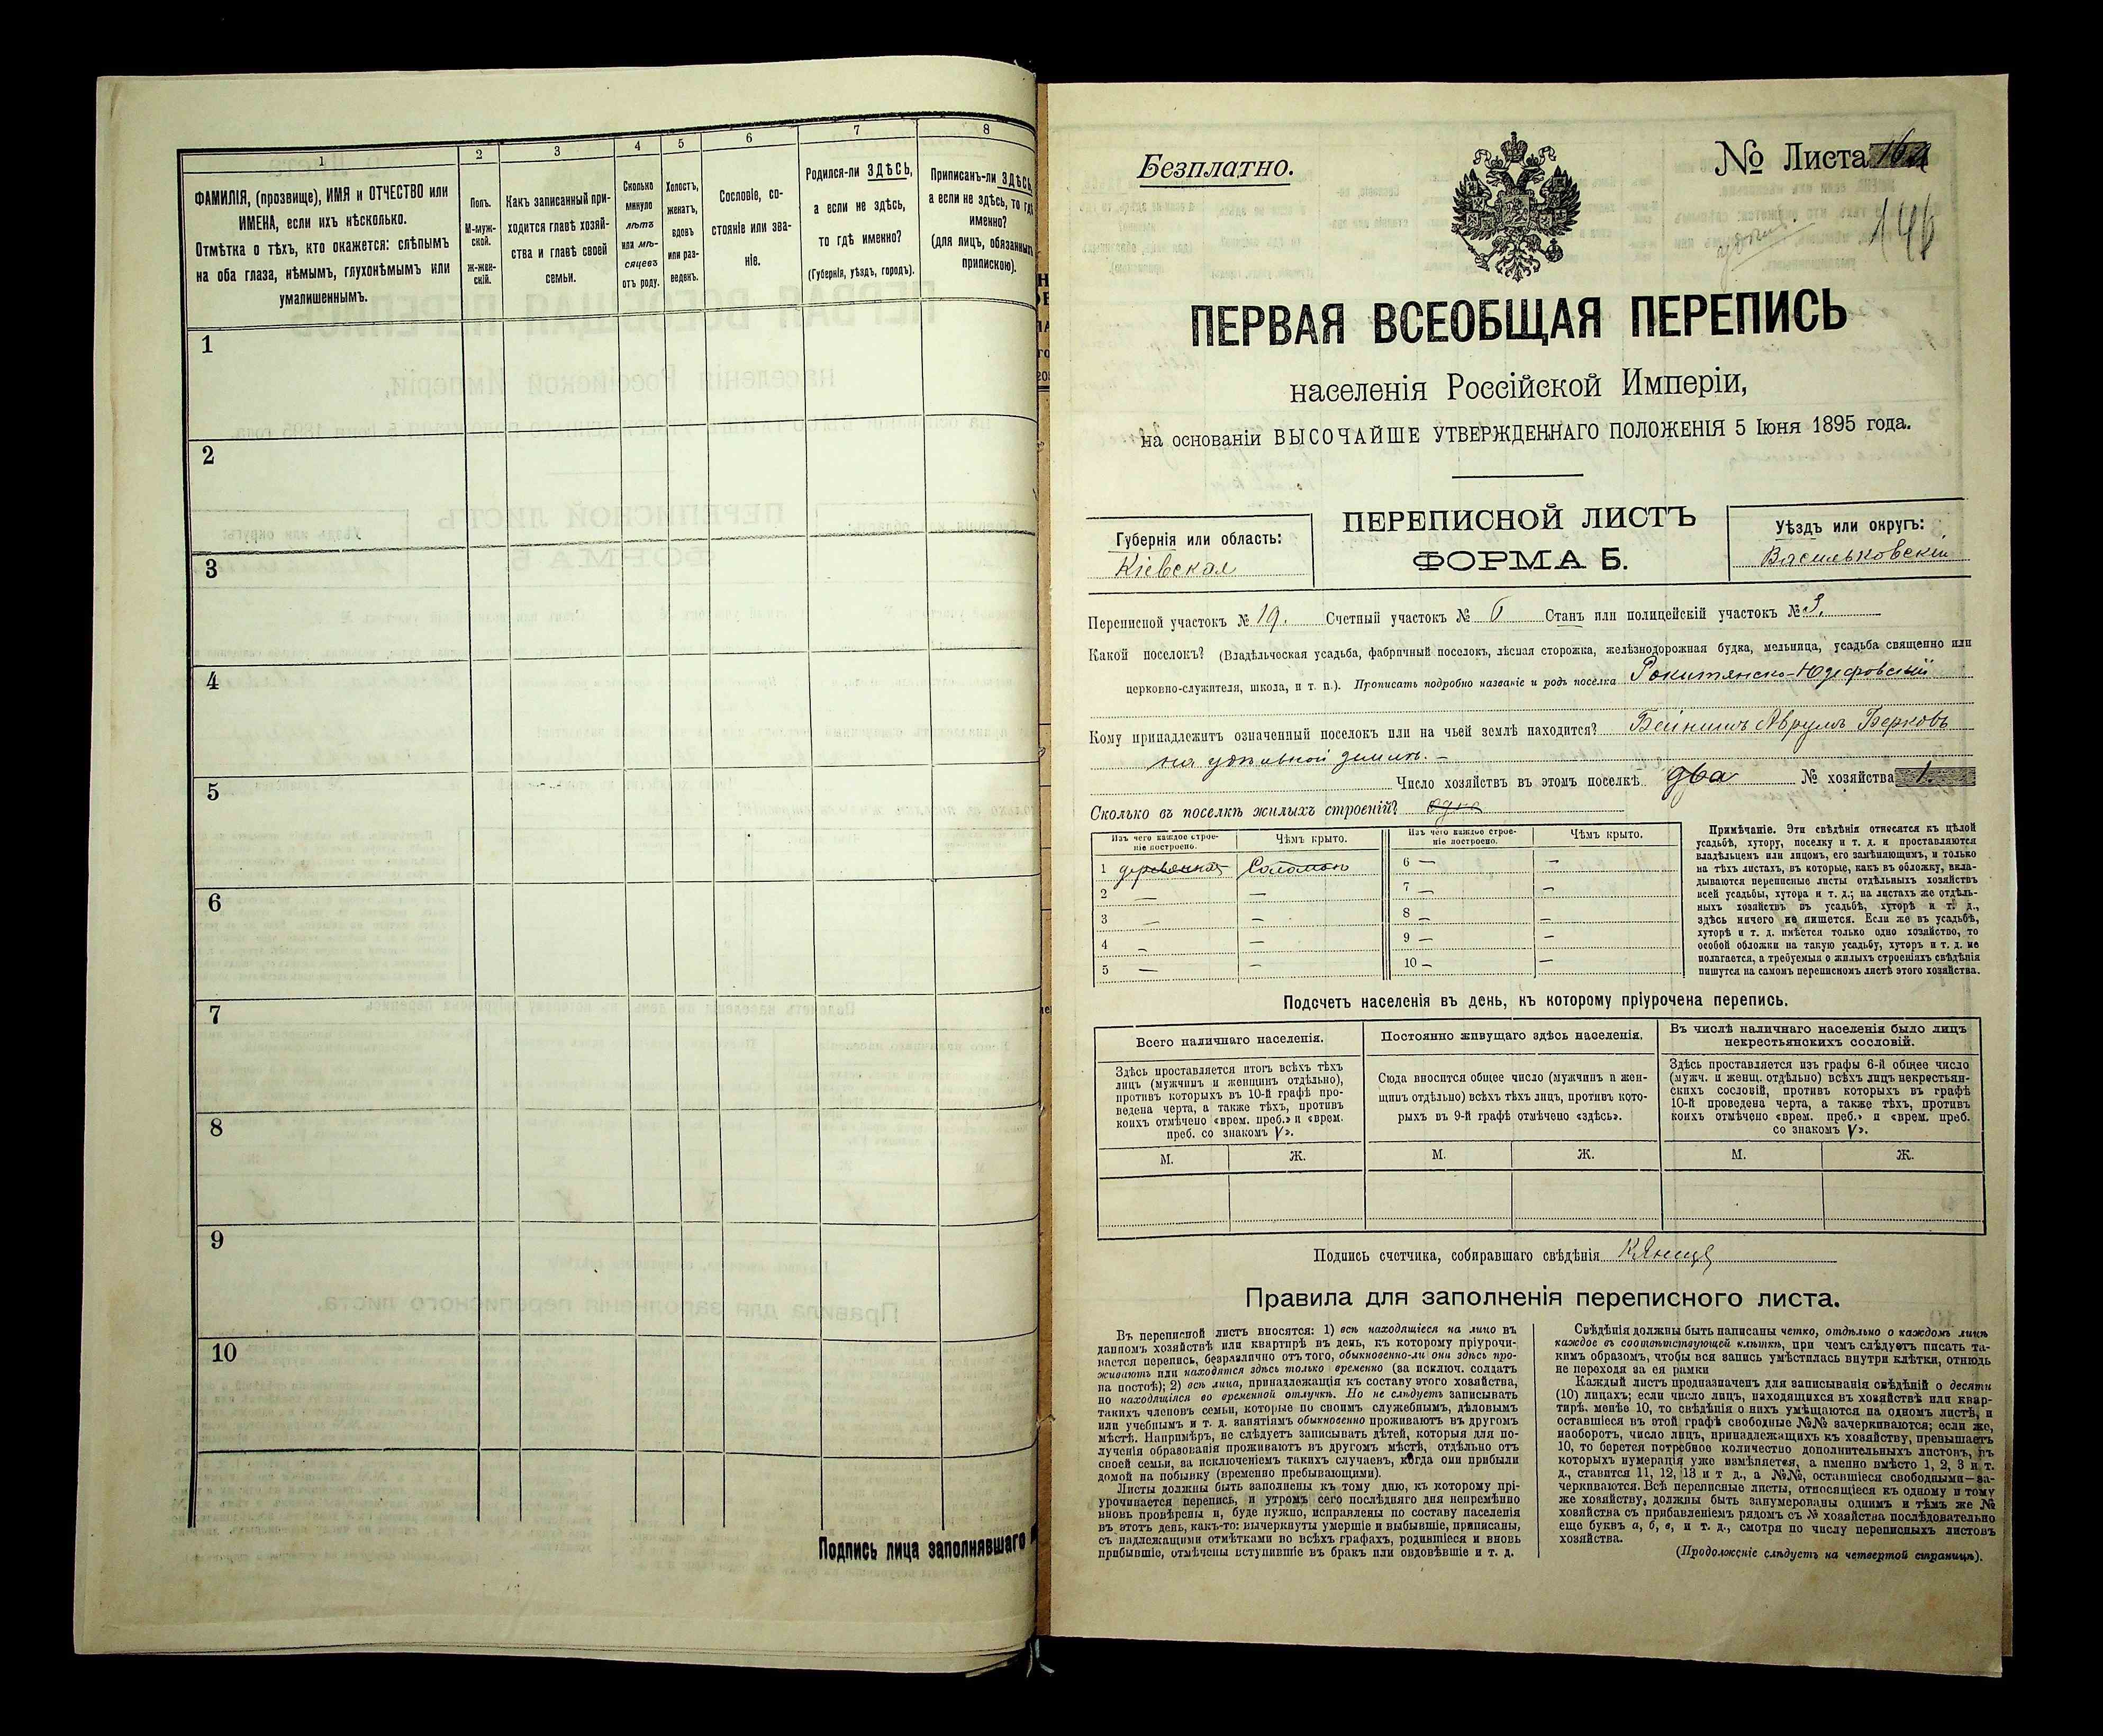 1
2
3
4
5
6
7
8
ФАМИЛІЯ, (прозвище), ИМЯ и ОТЧЕСТВО или
ИМЕНА, если ихъ нѣсколько.
Отмѣтка о тѣхъ, кто окажется: слѣпымъ
на оба глаза, нѣмымъ, глухонѣмымъ или
умалишеннымъ.
Полъ.
М-муж-
ской.
Ж-жен-
скій.
Какъ записанный при-
ходится главѣ хозяй-
ства и главѣ своей
семьи.
Сколько
минуло
лѣтъ
или мѣ-
сяцевъ
отъ роду.
Холостъ,
женатъ,
вдовъ
или раз-
веденъ.
Сословіе, со-
стояніе или зва-
ніе.
Родился-ли ЗДѢСЬ,
а если не здѣсь,
то гдѣ именно?
(Губернія, уѣздъ, городъ).
Приписанъ-ли ЗДѢСЬ,
а если не здѣсь, то гдѣ
именно?
(для лицъ, обязанныхъ
припискою).
1
2
3
4
5
6
7
8
9
10
Подпись лица заполнявшаго
Безплатно.
№ Листа 16а
146
ПЕРВАЯ ВСЕОБЩАЯ ПЕРЕПИСЬ
населенія Россійской Имперіи,
на основаніи ВЫСОЧАЙШЕ УТВЕРЖДЕННАГО ПОЛОЖЕНІЯ 5 Іюня 1895 года.
Губернія или область:
Кіевская
ПЕРЕПИСНОЙ ЛИСТЪ
ФОРМА Б.
Уѣздъ или округъ:
Васильковскій
Переписной участокъ № 19. Счетный участокъ № 6 Станъ или полицейскій участокъ № 3.
Какой поселокъ? (Владѣльческая усадьба, фабричный поселокъ, лѣсная сторожка, желѣзнодорожная будка, мельница, усадьба священно или
церковно-служителя, школа, и т. п.). Прописать подробно названіе и родъ поселка Рокитянско-Юзефовскій
Кому принадлежитъ означенный поселокъ или на чьей землѣ находится? Бейнишъ Аврумъ Берковъ
на удѣльной землѣ. –
Число хозяйствъ въ этомъ поселкѣ два № хозяйства 1.
Сколько въ поселкѣ жилыхъ строеній? одно
Изъ чего каждое строе-
ніе построено.
Чѣмъ крыто.
Изъ чего каждое строе-
ніе построено.
Чѣмъ крыто.
1 деревянная Соломою 6 — —
2 — — 7 — —
3 — — 8 — —
4 — — 9 — —
5 — — 10 — —
Примѣчаніе. Эти свѣдѣнія относятся къ цѣлой
усадьбѣ, хутору, поселку и т. д. и проставляются
владѣльцемъ или лицомъ, его замѣняющимъ, и только
на тѣхъ листахъ, въ которые, какъ въ обложку, вкла-
дываются переписные листы отдѣльныхъ хозяйствъ
всей усадьбы, хутора и т. д.; на листахъ же отдѣль-
ныхъ хозяйствъ въ усадьбѣ, хуторѣ и т. д.,
здѣсь ничего не пишется. Если же въ усадьбѣ,
хуторѣ и т. д. имѣется только одно хозяйство, то
особой обложки на такую усадьбу, хуторъ и т. д. не
полагается, а требуемыя о жилыхъ строеніяхъ свѣдѣнія
пишутся на самомъ переписномъ листѣ этого хозяйства.
Подсчетъ населенія въ день, къ которому пріурочена перепись.
Всего наличнаго населенія.
Здѣсь проставляется итогъ всѣхъ тѣхъ
лицъ (мужчинъ и женщинъ отдѣльно),
противъ которыхъ въ 10-й графѣ про-
ведена черта, а также тѣхъ, противъ
коихъ отмѣчено «врем. преб.» и «врем.
преб. со знакомъ V».
Постоянно живущаго здѣсь населенія.
Сюда вносится общее число (мужчинъ и жен-
щинъ отдѣльно) всѣхъ тѣхъ лицъ, противъ кото-
рыхъ въ 9-й графѣ отмѣчено «здѣсь».
Въ числѣ наличнаго населенія было лицъ
некрестьянскихъ сословій.
Здѣсь проставляется изъ графы 6-й общее число
(мужч. и женщ. отдѣльно) всѣхъ лицъ некрестьян-
скихъ сословій, противъ которыхъ въ графѣ
10-й проведена черта, а также тѣхъ, противъ
коихъ отмѣчено «врем. преб.» и «врем. преб.
со знакомъ V».
М. Ж. М. Ж. М. Ж.
Подпись счетчика, собиравшаго свѣдѣнія
Правила для заполненія переписного листа.
Въ переписной листъ вносятся: 1) всѣ находящіеся на лицо въ
данномъ хозяйствѣ или квартирѣ въ день, къ которому пріурочи-
вается перепись, безразлично отъ того, обыкновенно-ли они здѣсь про-
живаютъ или находятся здѣсь только временно (за исключ. солдатъ
на постоѣ); 2) всѣ лица, принадлежащія къ составу этого хозяйства,
но находящіяся во временной отлучкѣ. Но не слѣдуетъ записывать
такихъ членовъ семьи, которые по своимъ служебнымъ, дѣловымъ
или учебнымъ и т. д. занятіямъ обыкновенно проживаютъ въ другомъ
мѣстѣ. Напримѣръ, не слѣдуетъ записывать дѣтей, которыя для по-
лученія образованія проживаютъ въ другомъ мѣстѣ, отдѣльно отъ
своей семьи, за исключеніемъ такихъ случаевъ, когда они прибыли
домой на побывку (временно пребывающими).
Листы должны быть заполнены къ тому дню, къ которому прі-
урочивается перепись, и утромъ сего послѣдняго дня непремѣнно
вновь провѣрены и, буде нужно, исправлены по составу населенія
въ этотъ день, какъ-то: вычеркнуты умершіе и выбывшіе, приписаны,
съ надлежащими отмѣтками во всѣхъ графахъ, родившіеся и вновь
прибывшіе, отмѣчены вступившіе въ бракъ или овдовѣвшіе и т. д.
Свѣдѣнія должны быть написаны четко, отдѣльно о каждомъ лицѣ
каждое въ соотвѣтствующей клѣткѣ, при чемъ слѣдуетъ писать та-
кимъ образомъ, чтобы вся запись умѣстилась внутри клѣтки, отнюдь
не переходя за ея рамки
Каждый листъ предназначенъ для записыванія свѣдѣній о десяти
(10) лицахъ; если число лицъ, находящихся въ хозяйствѣ или квар-
тирѣ, менѣе 10, то свѣдѣнія о нихъ умѣщаются на одномъ листѣ, и
оставшіеся въ этой графѣ свободные №№ зачеркиваются; если же,
наоборотъ, число лицъ, принадлежащихъ къ хозяйству, превышаетъ
10, то берется потребное количество дополнительныхъ листовъ, въ
которыхъ нумерація уже измѣняется, а именно вмѣсто 1, 2, 3 и т.
д., ставится 11, 12, 13 и т д., а №№, оставшіеся свободными—за-
черкиваются. Всѣ переписные листы, относящіеся къ одному и тому
же хозяйству, должны быть занумерованы однимъ и тѣмъ же №
хозяйства съ прибавленіемъ рядомъ съ № хозяйства послѣдовательно
еще буквъ а, б, в, и т. д., смотря по числу переписныхъ листовъ
хозяйства.
(Продолженіе слѣдуетъ на четвертой страницѣ).